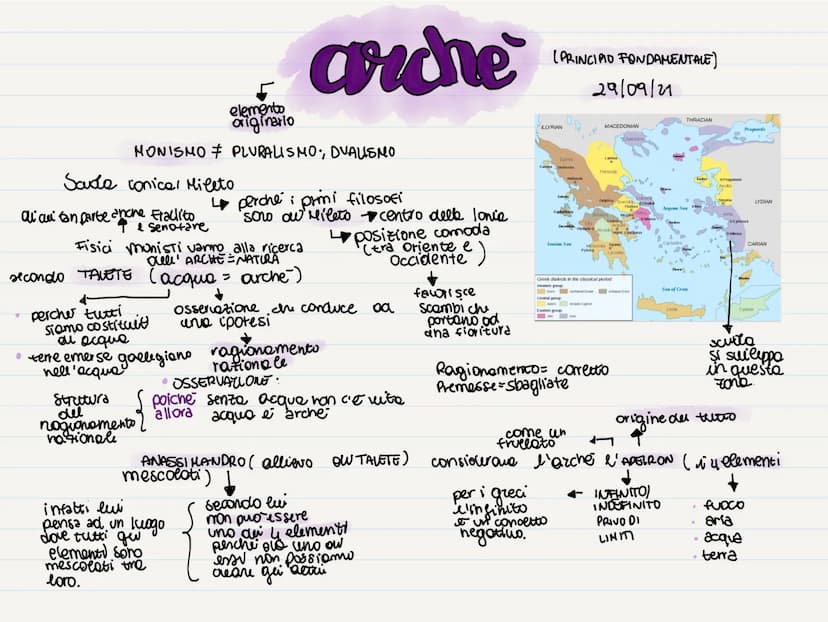 archè
(PRINCIPIO FONDAMENTALE)
29/09/21
elemento
originario
MONISMO ≠ PLURALISMO; DUALISMO
Scuola ionica/Mileto
perché i primi filosofi
sono di Mileto → centro della Ionia
posizione comoda
(tra oriente e
occidente)
di cui fan parte anche Eraclito
e Senofane
Fisici monisti vanno alla ricerca
dell'ARCHÈ=NATURA
secondo TALETE (acqua = archè)
favorisce
scambi che
portano ad
una fioritura
perché tutti
siamo costituiti
di acqua
terre emerse galleggiano
nell'acqua
osservazione che conduce ad
una ipotesi
ragionamento
razionale
OSSERVAZIONE:
Struttura
del
ragionamento
razionale
poiché senza acqua non c'è vita
allora acqua è archè
Ragionamento= corretto
Premesse=sbagliate
ILLYRIAN
MACEDONIAN
THRACIAN
Propontis
LYDIAN
CARIAN
Aegean Sea
Ionian Sea
Sea of Crete
Greek dialects in the classical period
scuola
si sviluppa
in questa
zona
origine del tutto
come un
frullato
ANASSIMANDRO (allievo di TALETE) considerava l'archè l'APEIRON (i 4 elementi
mescolati)
infatti lui
pensa ad un luogo
dove tutti gli
elementi sono
mescolati tra
loro.
secondo lui
non può essere
uno dei 4 elementi
perché da uno di
essi non possiamo
creare gli altri
per i greci
l'infinito
è un concetto
negativo.
INFINITO/
INDEFINITO
PRIVO DI
LIMITI
fuoco
aria
acqua
terra